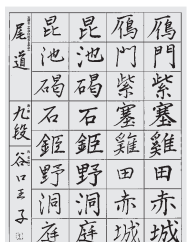 鴈門紫塞雞田赤城
鴈門紫塞雞田赤城
昆池碣石鉅野洞庭
昆池碣石鉅野洞庭
尾道 九段 谷口